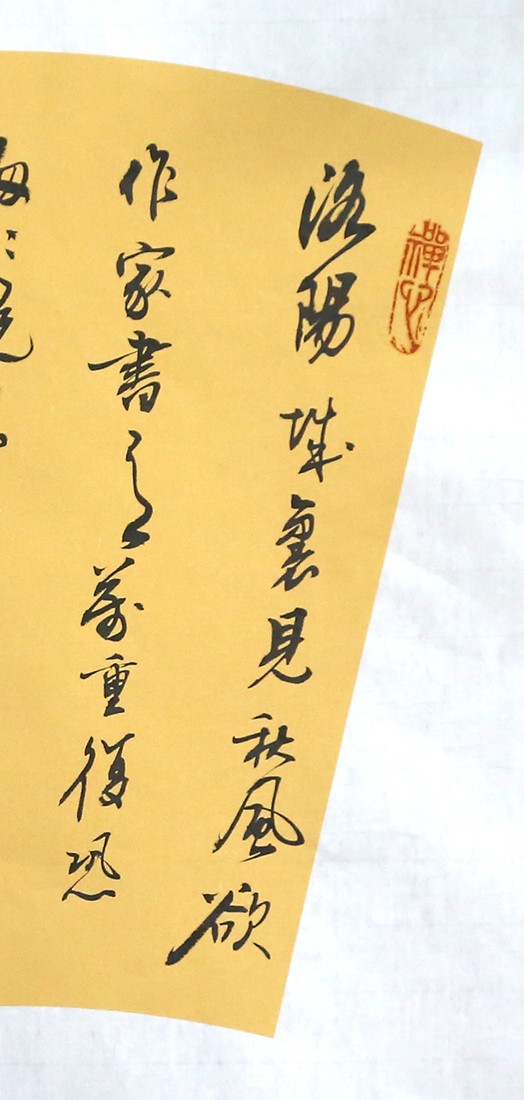 禪心
洛陽城裏見秋風欲
作家書意萬重復恐